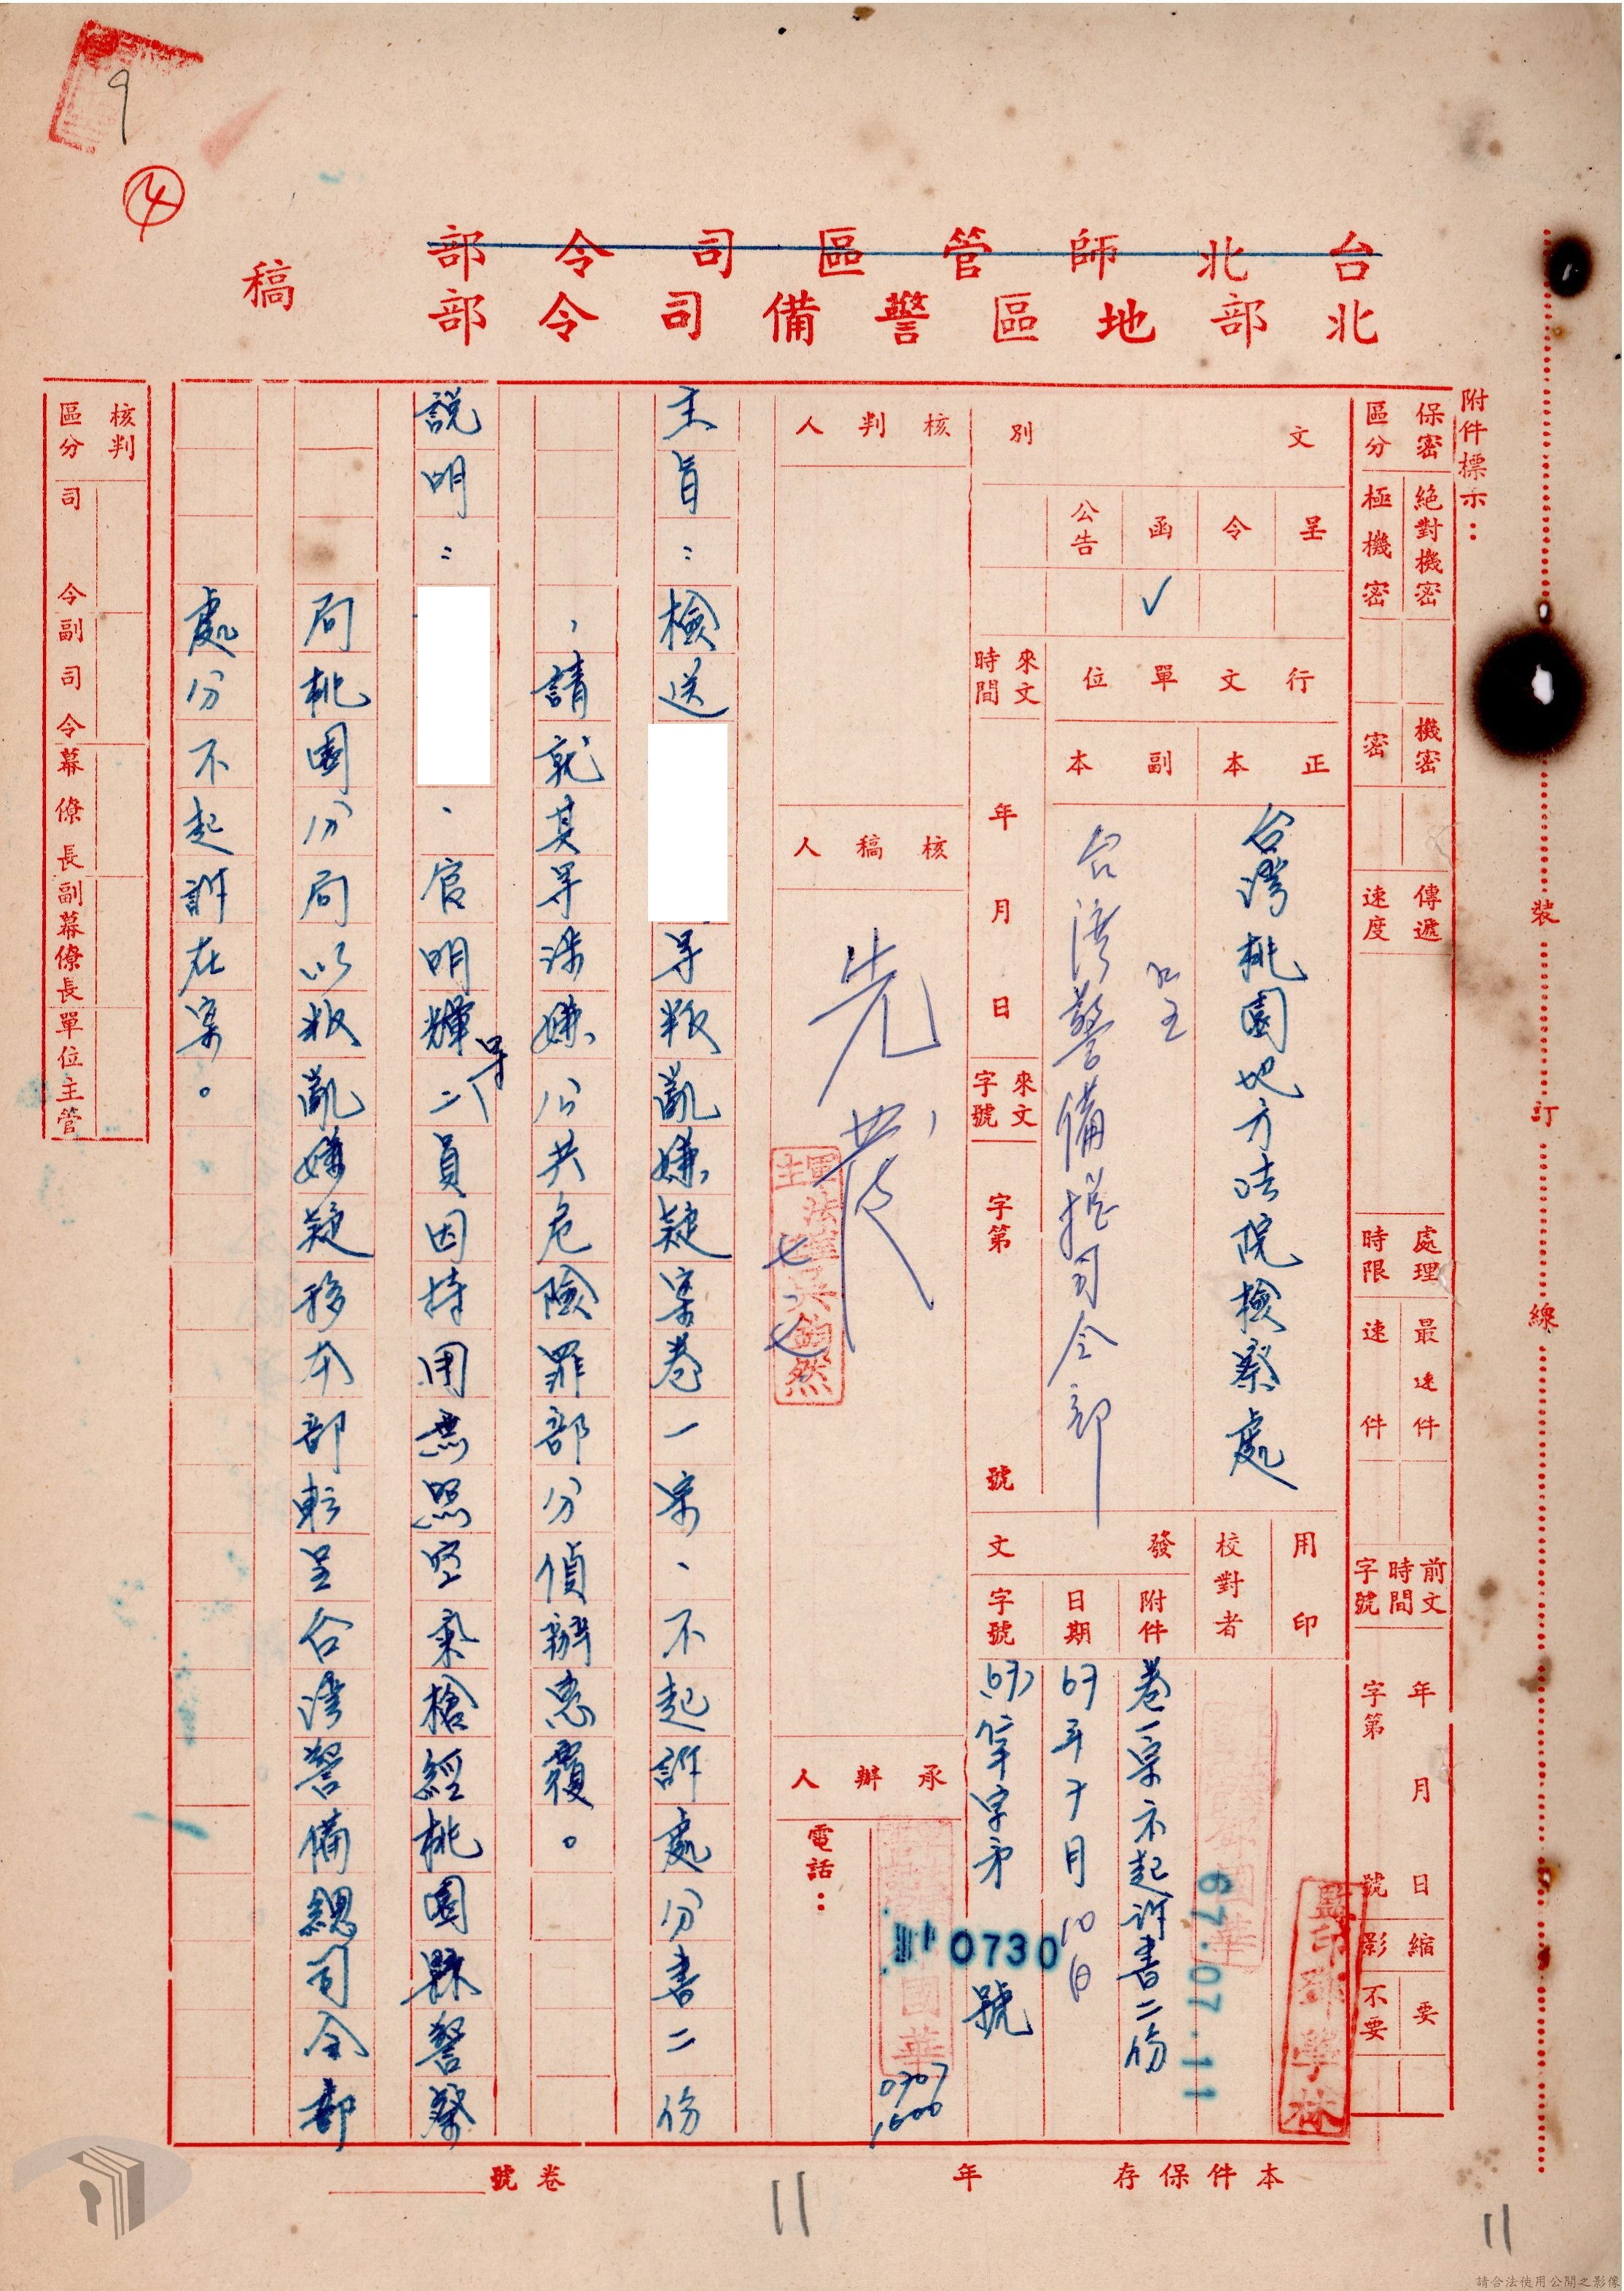 9
④
台北師管區司令部
北部地區警備司令部
稿
附件標示：
保密區分
絕對機密
極機密
機密
密
傳遞速度
處理時限
最速件
速件
前文時間字號
年月日
字第號
縮影
要
不要
文別
呈
令
函
公告
✓
行文單位
正本
副本
台灣桃園地方法院檢察處
台灣警備總司令部
來文時間
年月日
來文字號
字第號
用印
監印
校對者
發文
附件
卷一宗不起訴書二份
日期
67年7月10日
字號
(67)
字第
0730
號
67.07.11
核判人
核稿人
承辦人
電話：
國華
0707
1600
主旨：檢送
等叛亂嫌疑案卷一宗、不起訴處分書二份
，請就其等涉嫌公共危險罪部分偵辦惠覆。
說明：
、官明輝等二員因持用無照空氣槍經桃園縣警察
局桃園分局以叛亂嫌疑移本部轉呈台灣警備總司令部
處分不起訴在案。
核判區分
司令
副司令
幕僚長
副幕僚長
單位主管
裝
訂
線
本件保存年
卷號
11
11
請合法使用公開之影像